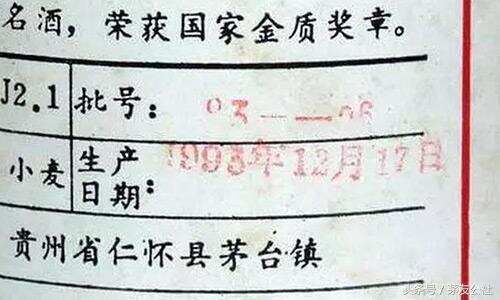 名酒，荣获国家金质奖章。
J2.1 批号: 93——06
小麦 生产日期: 1993年12月17日
贵州省仁怀县茅台镇
头条号/茅友公社